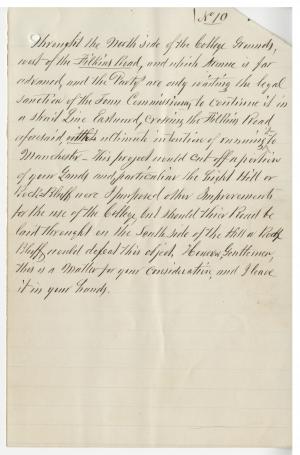 No 10
through the North side of the College Grounds,
west of the Filkins Road, and which Avenue is far
advanced, and the Partys are only waiting the legal
sanction of the Town Commissioners to continue it in
a strait Line Eastward, crossing the Filkins Road
aforesaid with ultimate intention of running to
Manchester – This project would cut off a portion
of your Lands and particular the Hill or
Rock Bluff were I purposed other Improvements
for the use of the College, but should their Road be
laid through on the South side of the Hill or Rock
Bluff, would defeat this object, However, Gentlemen,
this is a Matter for your consideration, and I leave
it in your hands.